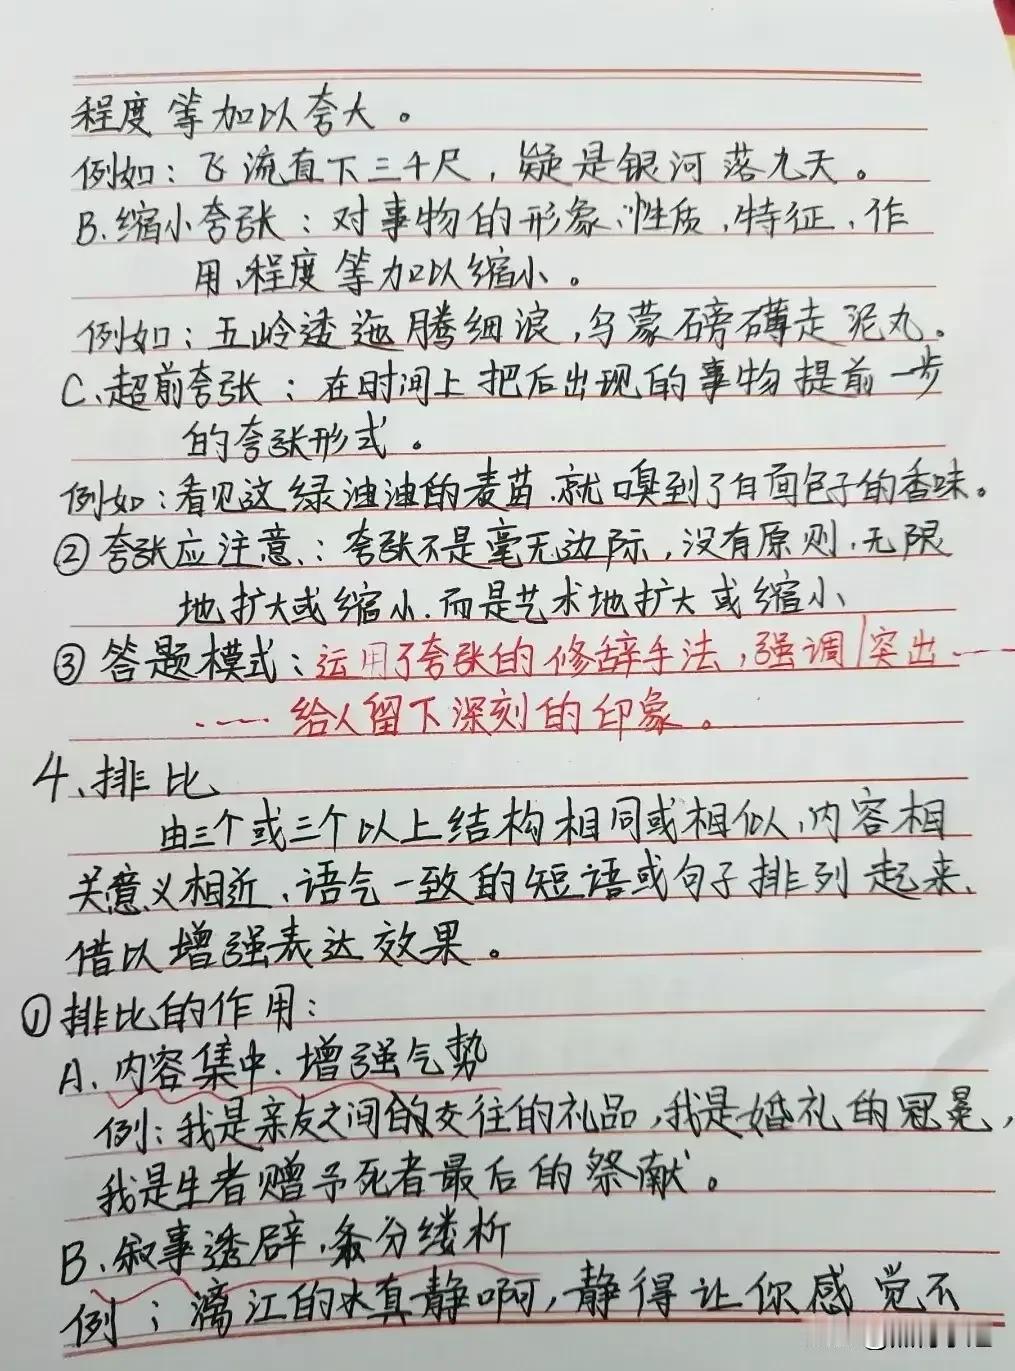 程度等加以夸大。
例如：飞流直下三千尺，疑是银河落九天。
B.缩小夸张：对事物的形象、性质、特征、作
用、程度等加以缩小。
例如：五岭逶迤腾细浪，乌蒙磅礴走泥丸。
C、超前夸张：在时间上把后出现的事物提前一步
的夸张形式。
例如：看见这绿油油的麦苗、就嗅到了白面包子的香味。
②夸张应注意：夸张不是毫无边际，没有原则、无限
地扩大或缩小.而是艺术地扩大或缩小
③答题模式：运用了夸张的修辞手法，强调/突出……
……给人留下深刻的印象。
4、排比
由三个或三个以上结构相同或相似、内容相
关意义相近、语气一致的短语或句子排列起来、
借以增强表达效果。
①排比的作用：
A、内容集中.增强气势
例：我是亲友之间的交往的礼品，我是婚礼的冠冕，
我是生者赠予死者最后的祭献。
B、叙事透辟、条分缕析
例：漓江的水真静啊，静得让你感觉不